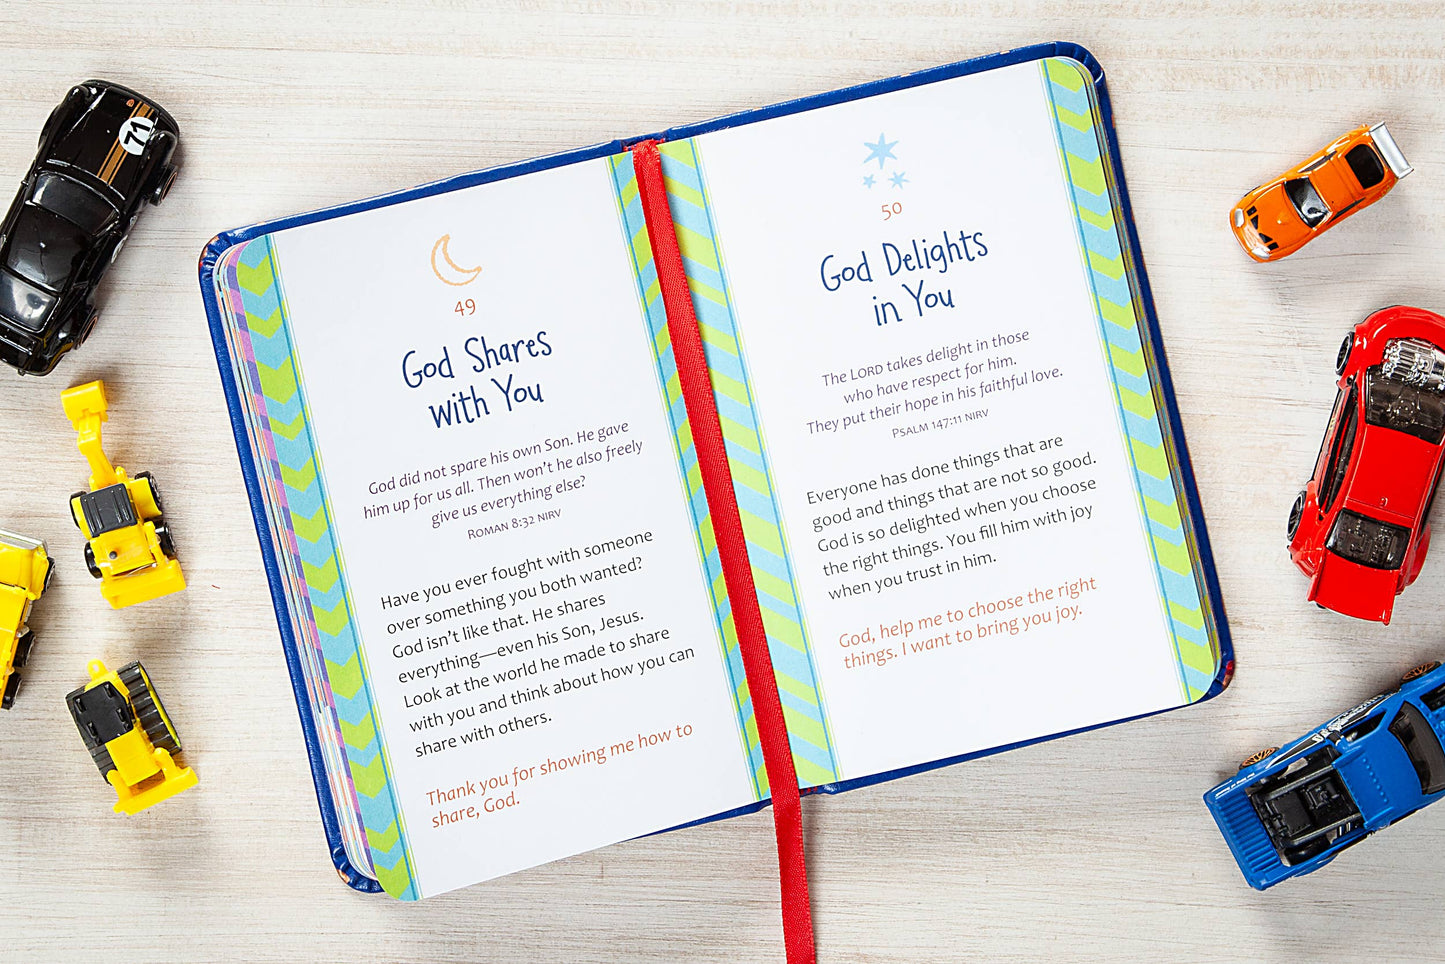 71
49
God Shares
with You
God did not spare his own Son. He gave
him up for us all. Then won't he also freely
give us everything else?
ROMAN 8:32 NIRV
Have you ever fought with someone
over something you both wanted?
God isn't like that. He shares
everything—even his Son, Jesus.
Look at the world he made to share
with you and think about how you can
share with others.
Thank you for showing me how to
share, God.
50
God Delights
in You
The LORD takes delight in those
who have respect for him.
They put their hope in his faithful love.
PSALM 147:11 NIRV
Everyone has done things that are
good and things that are not so good.
God is so delighted when you choose
the right things. You fill him with joy
when you trust in him.
God, help me to choose the right
things. I want to bring you joy.